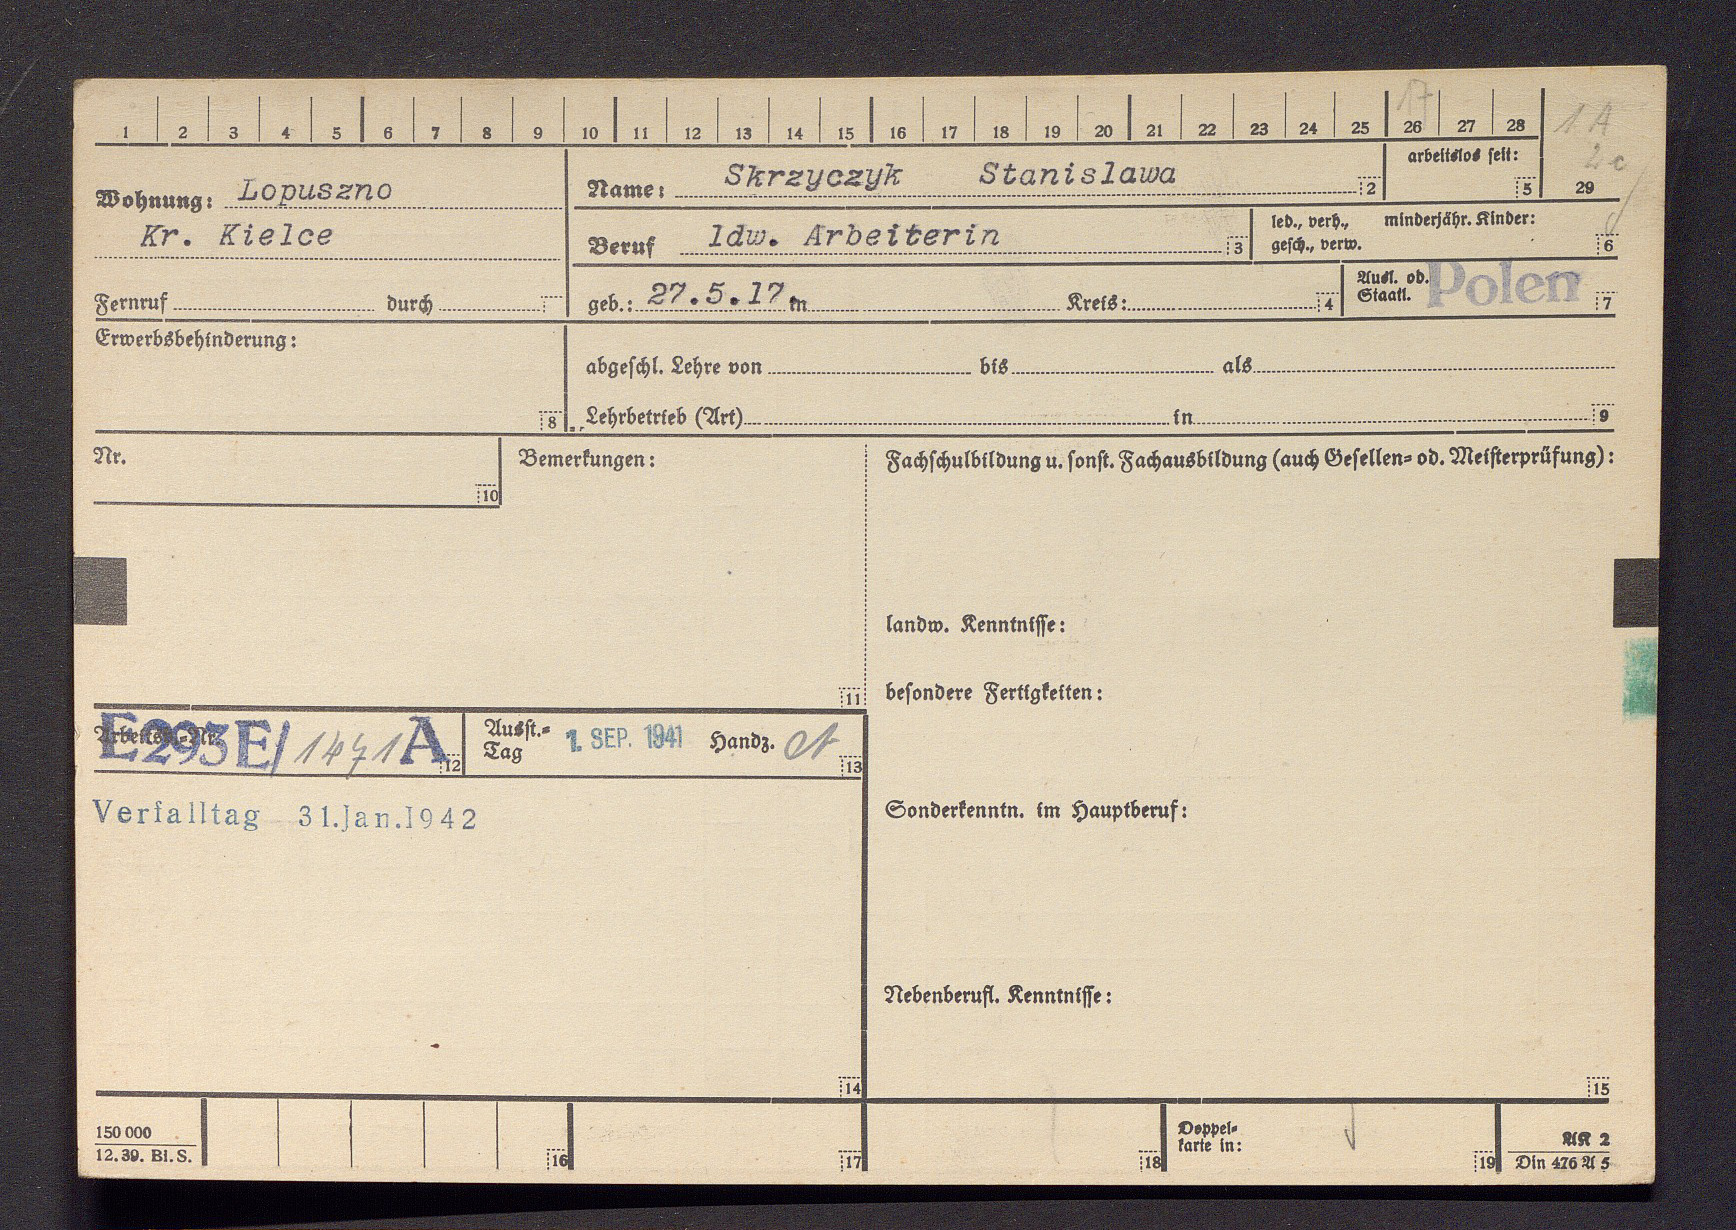 1 2 3 4 5 6 7 8 9 10 11 12 13 14 15 16 17 18 19 20 21 22 23 24 25 26 27 28
17
1 A
2 c
29
arbeitslos seit:
5
Wohnung: Lopuszno
Kr. Kielce
Fernruf durch
Name: Skrzyczyk Stanislawa 2
Beruf ldw. Arbeiterin 3
led., verh., minderjähr. Kinder:
gesch., verw. 6
geb.: 27.5.17. in Kreis: 4
Ausl. od. Staatl. Polen 7
Erwerbsbehinderung:
8
abgeschl. Lehre von bis als
Lehrbetrieb (Art) in 9
Nr.
10
Bemerkungen:
11
Fachschulbildung u. sonst. Fachausbildung (auch Gesellen- od. Meisterprüfung):
landw. Kenntnisse:
besondere Fertigkeiten:
Arbeitsb.-Nr. E293E/1471A 12
Ausst.-Tag 1. SEP. 1941 Handz. 13
Verfalltag 31.Jan.1942
14
Sonderkenntn. im Hauptberuf:
Nebenberufl. Kenntnisse:
15
150 000
12. 39. Bl. S.
16
17
18
Doppel-
karte in:
19
AK 2
Din 476 A 5